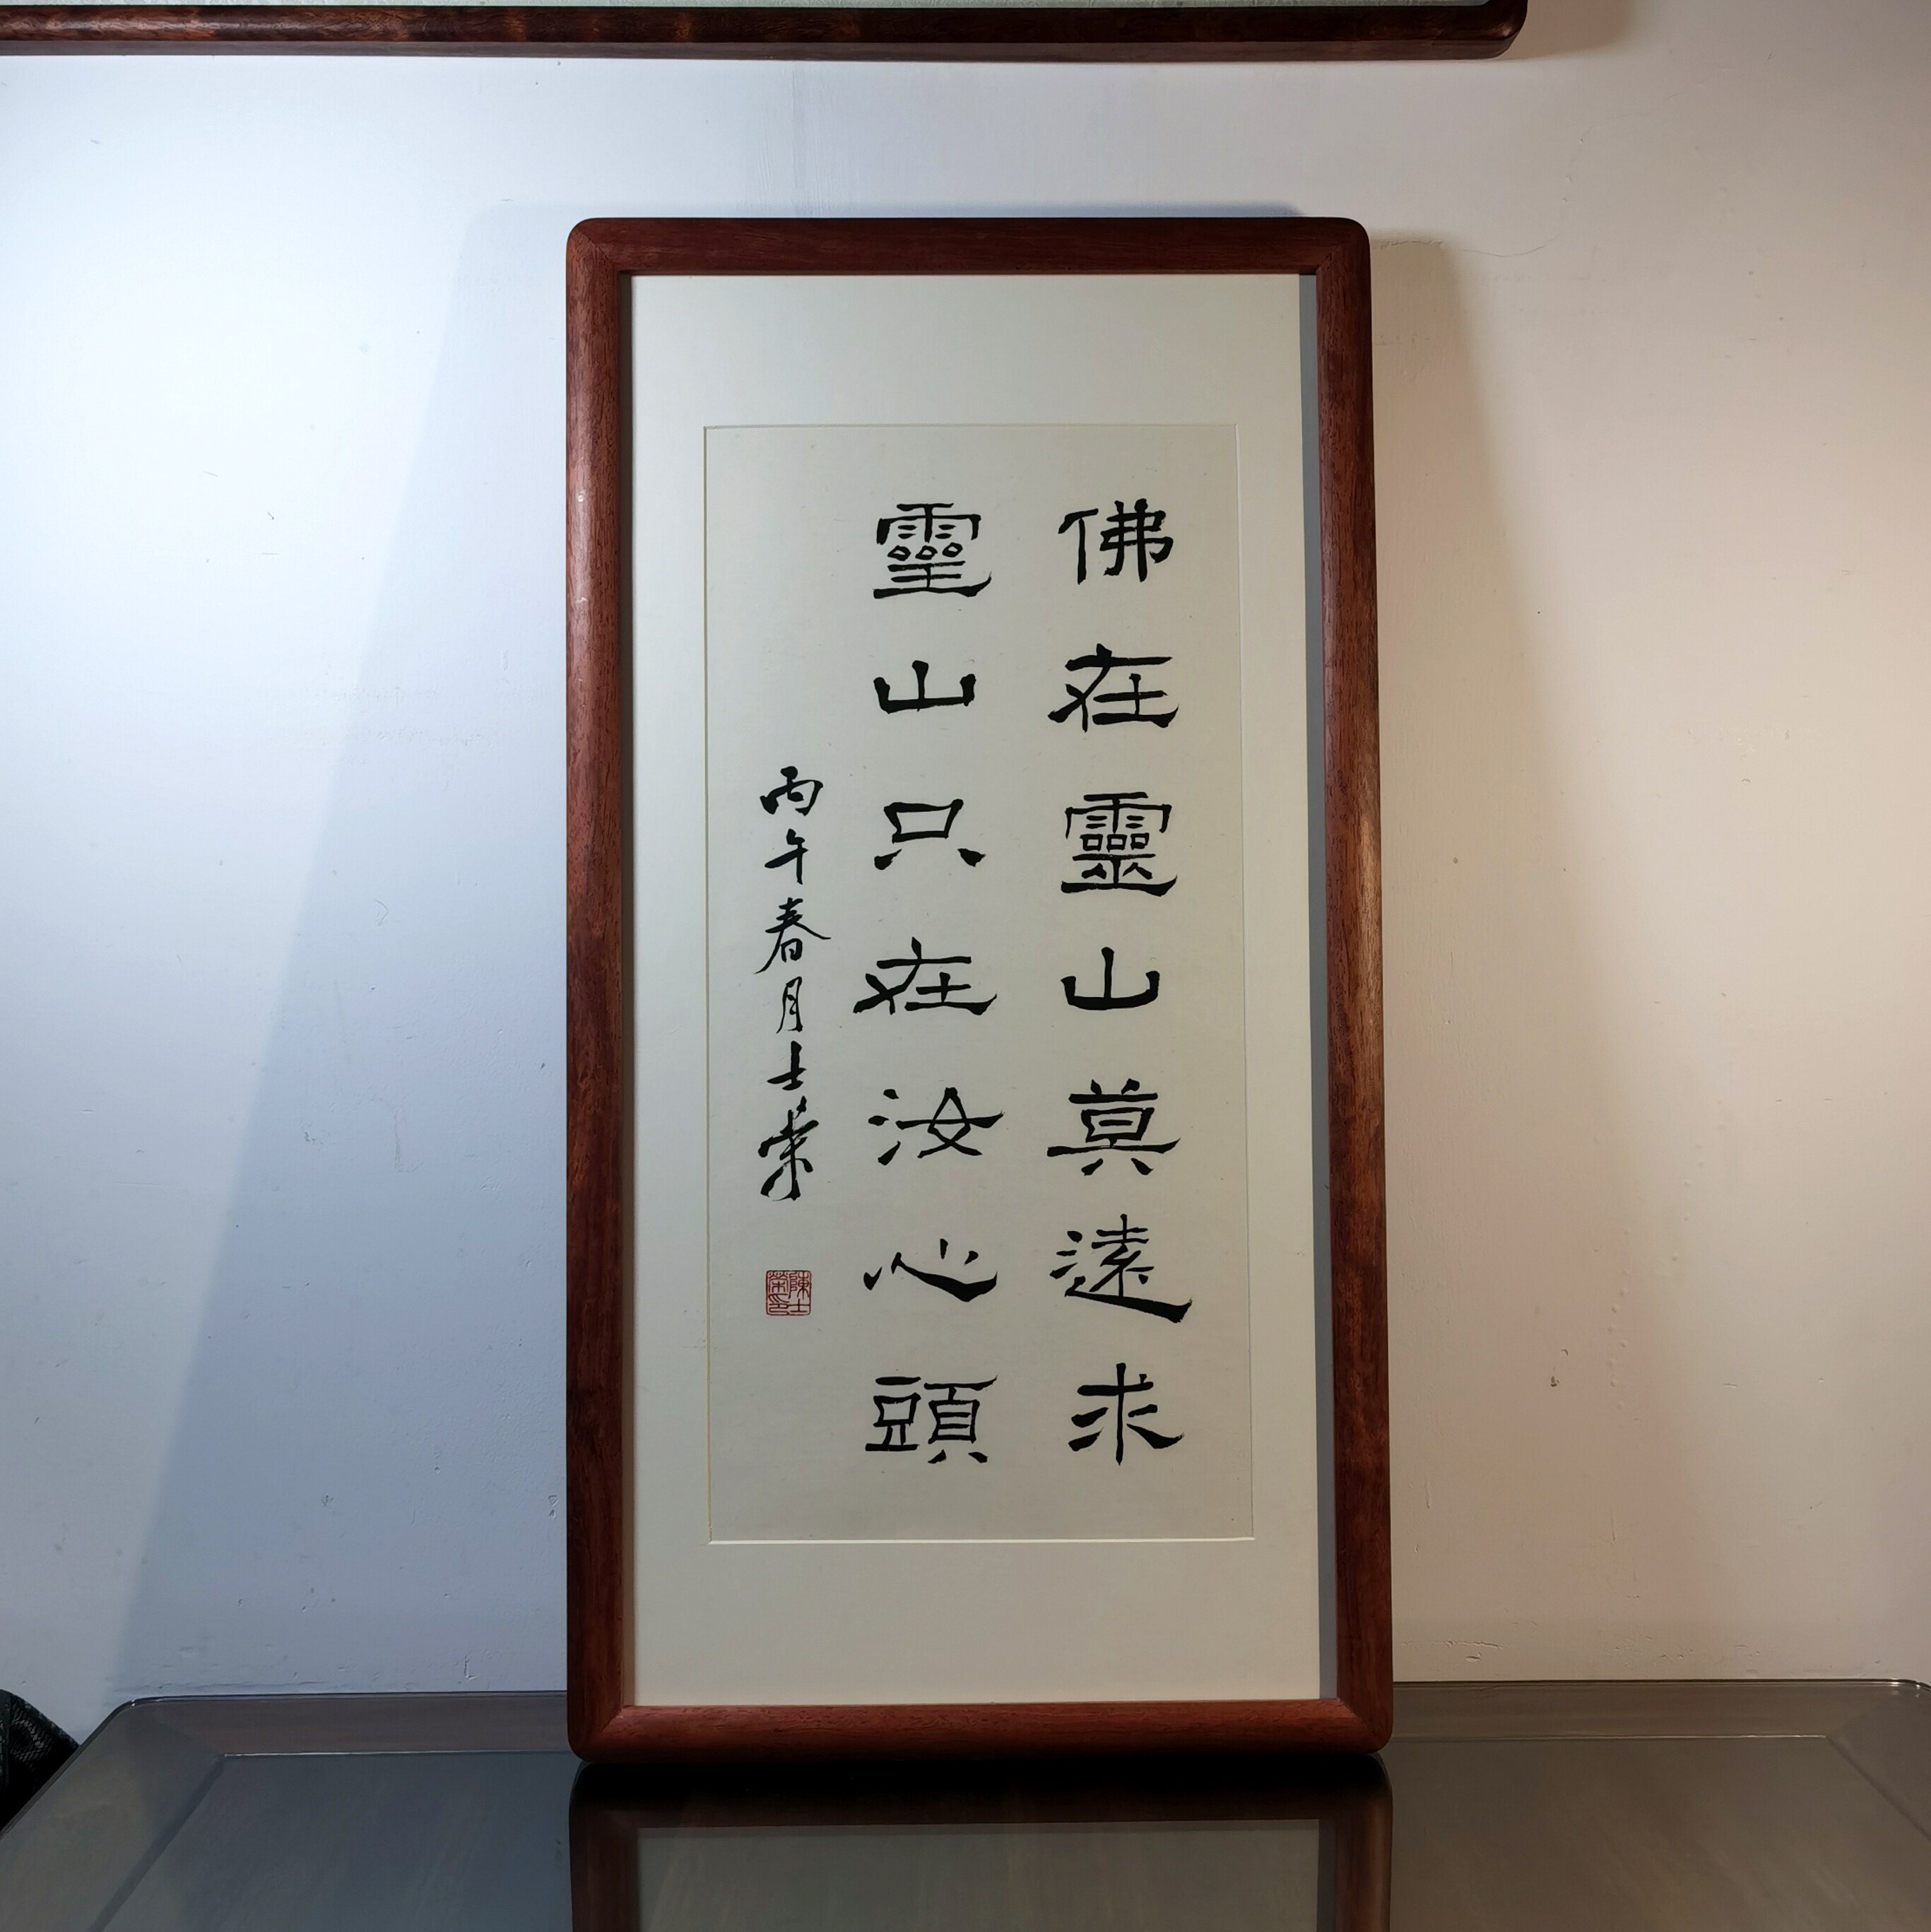 佛在靈山莫遠求
靈山只在汝心頭
丙午春月士榮
陳士榮印